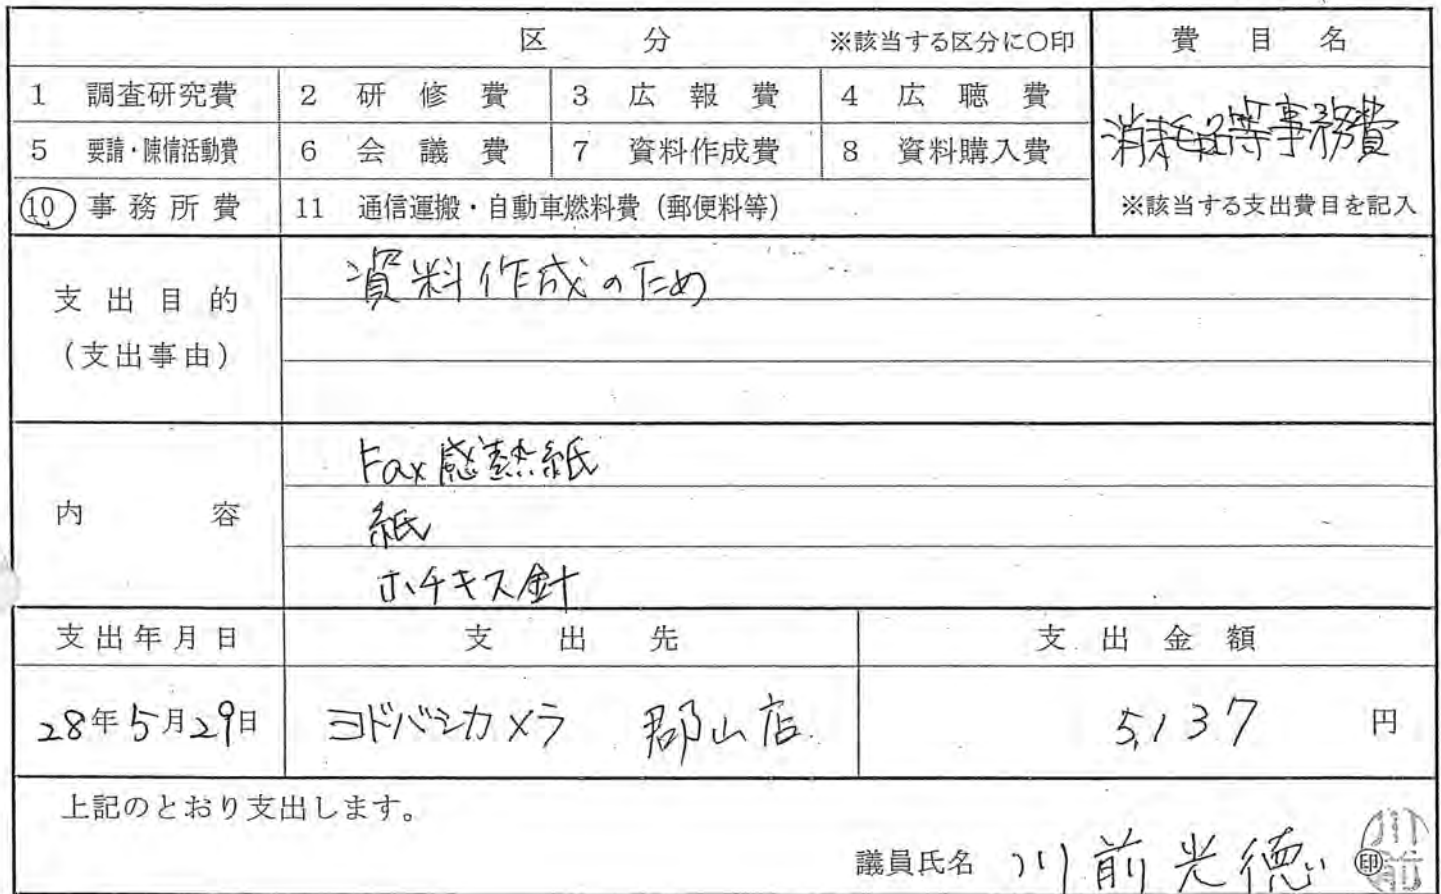 区 分 ※該当する区分に○印 費目名
1 調査研究費 2 研修費 3 広報費 4 広聴費
消耗品等事務費
5 要請・陳情活動費 6 会議費 7 資料作成費 8 資料購入費
10 事務所費 11 通信運搬・自動車燃料費（郵便料等） ※該当する支出費目を記入
資料作成のため
支出目的
（支出事由）
Fax感熱紙
内容 紙
ホチキス針
支出年月日 支出先 支出金額
28年5月29日 ヨドバシカメラ 郡山店 5,137 円
上記のとおり支出します。
議員氏名 川前光徳 ㊞ 川前